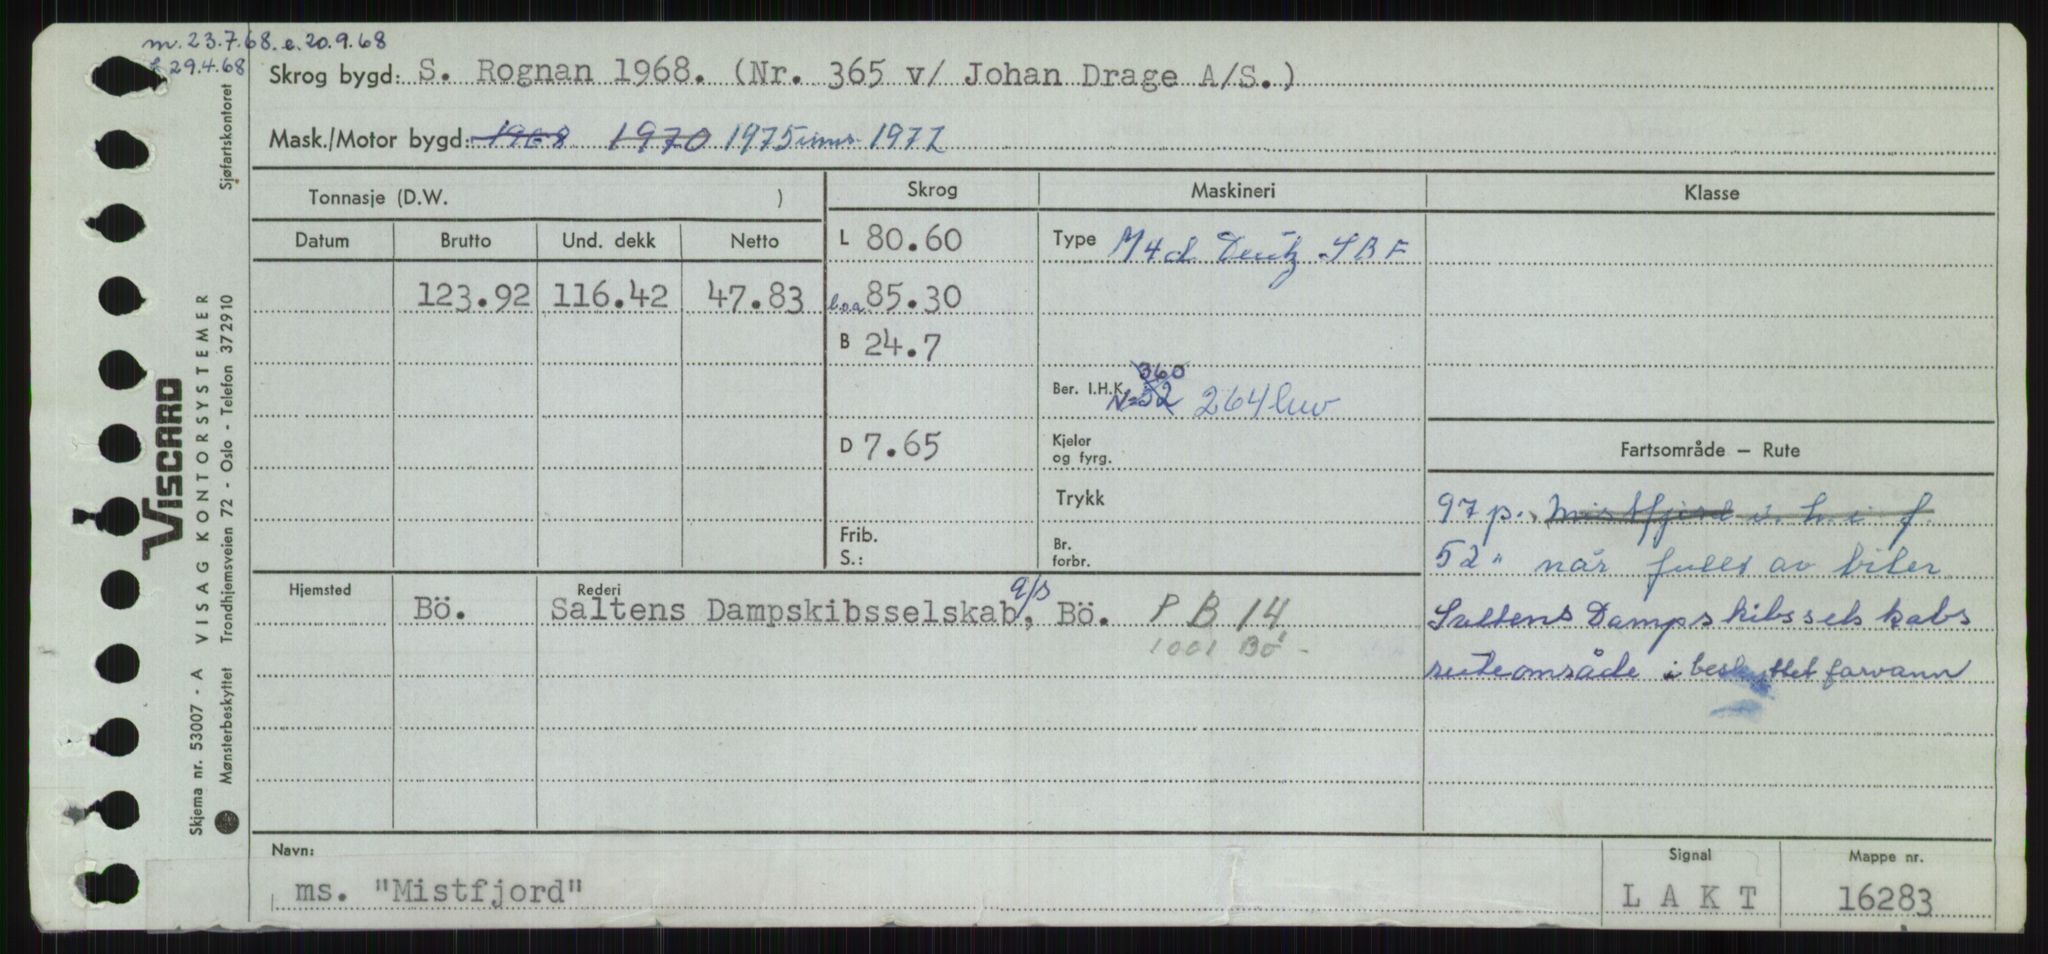 m. 23.7.68. e. 20.9.68
29.4.68
Skrog bygd: S. Rognan 1968. (Nr. 365 v/ Johan Drage A/S.)
Mask./Motor bygd: 1968 1970 1975 1977
Sjøfartskontoret
Tonnasje (D.W. )
Skrog
Maskineri
Klasse
Datum Brutto Und. dekk Netto
L 80.60
Type M4cl Deutz SBF
123.92 116.42 47.83
loa 85.30
B 24.7
360
Ber. I.H.K. N=52 264 kw
D 7.65
Kjeler
og fyrg.
Fartsområde – Rute
Trykk
97 p. Mistfjord i. h. i. f.
Frib.
S.:
Br.
forbr.
52 " når fullt av biler
Hjemsted Rederi
Bö. Saltens Dampskibsselskab a/s, Bö. P B 14
1001 Bö -
Saltens Dampskibsselskabs
ruteområde i beskyttet farvann
Navn:
ms. "Mistfjord"
Signal
L A K T
Mappe nr.
16283
VISCARD
Skjema nr. 53007 - A VISAG KONTORSYSTEMER
Mønsterbeskyttet Trondhjemsveien 72 - Oslo - Telefon 37 29 10